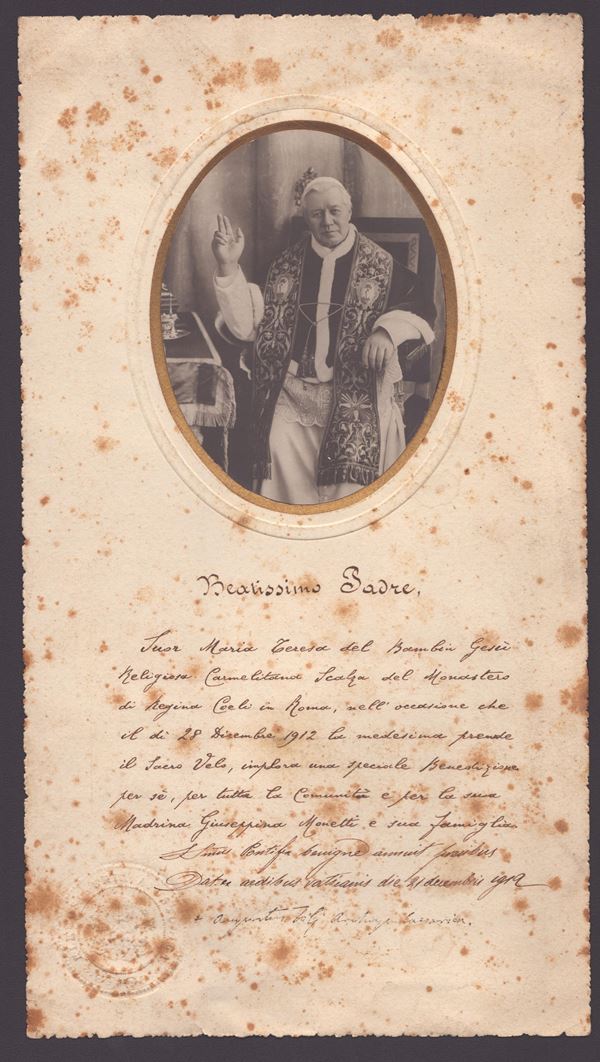 Beatissimo Padre,
Suor Maria Teresa del Bambin Gesù
Religiosa Carmelitana Scalza del Monastero
di Regina Coeli in Roma, nell'occasione che
il dì 28 Dicembre 1912 la medesima prende
il Sacro Velo, implora una speciale Benedizione
per sè, per tutta la Comunità e per la sua
Madrina Giuseppina Monetti e sua famiglia.
benigne annuit precibus
Dat. ex aedibus vaticanis die 21 decembris 1912